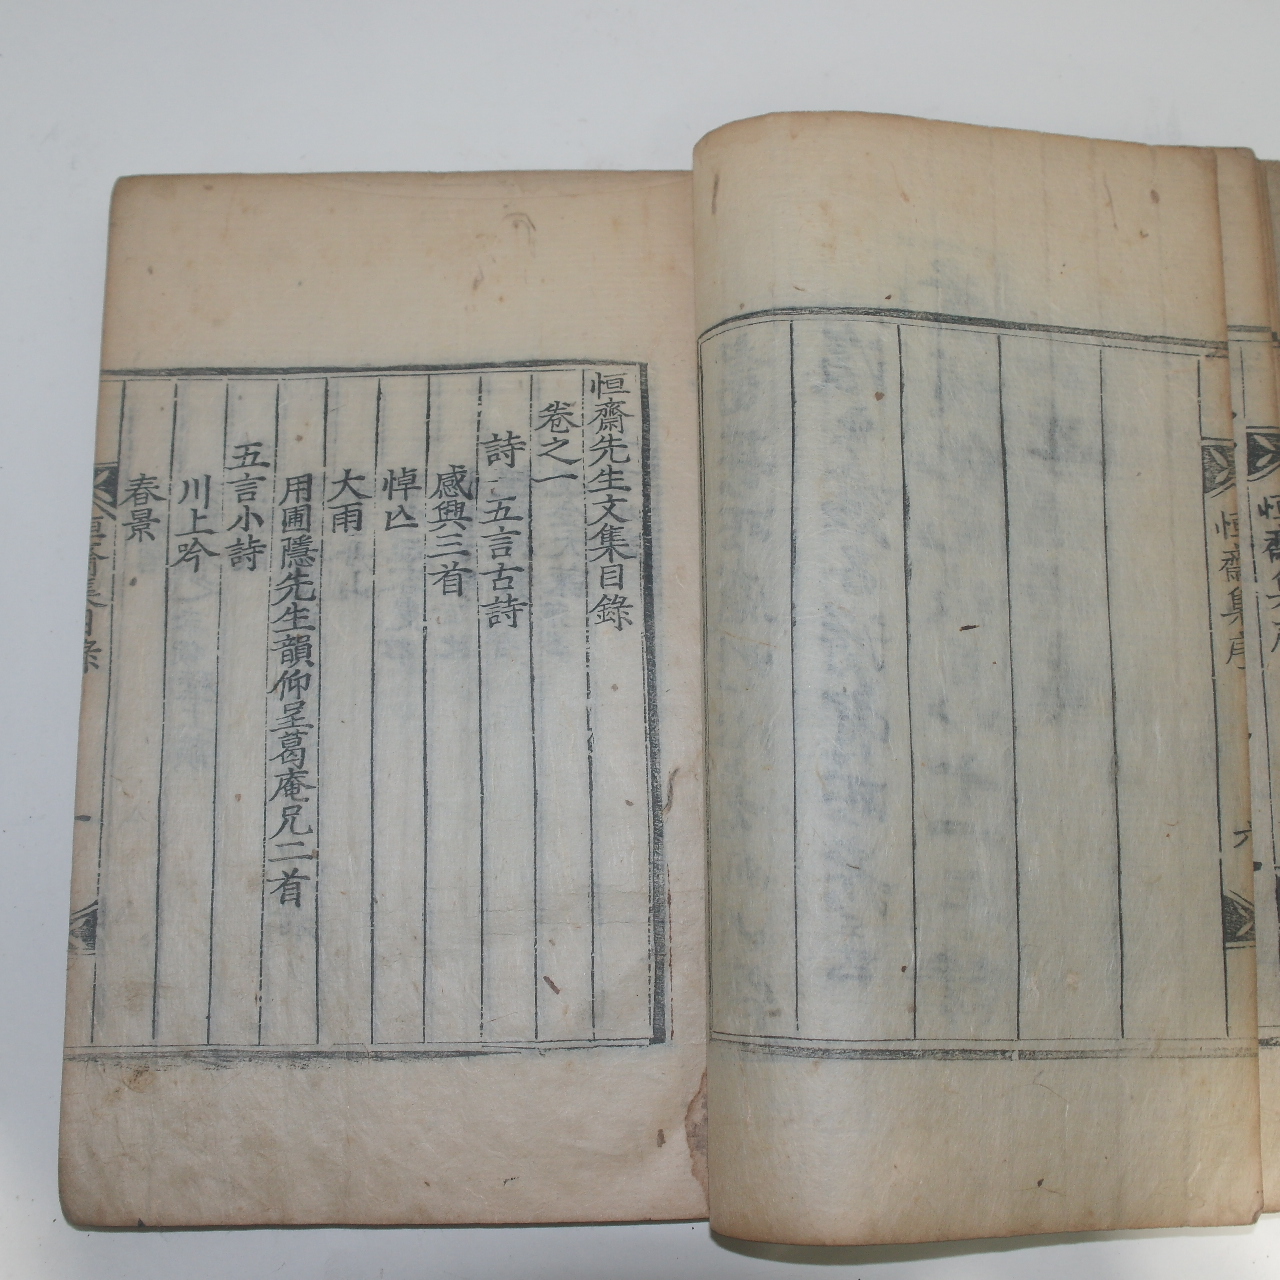 恒齋集序
六
恒齋先生文集目錄
卷之一
詩○五言古詩
感興三首
悼亡
大雨
用圃隱先生韻仰呈葛庵兄二首
五言小詩
川上吟
春景
恒齋集目錄
一